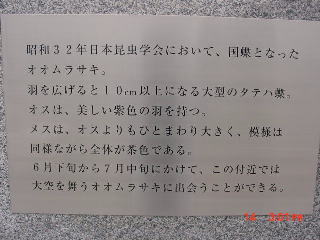 昭和32年日本昆虫学会において、国蝶となった
オオムラサキ。
羽を広げると10cm以上になる大型のタテハ蝶。
オスは、美しい紫色の羽を持つ。
メスは、オスよりもひとまわり大きく、模様は
同様ながら全体が茶色である。
6月下旬から7月中旬にかけて、この付近では
大空を舞うオオムラサキに出会うことができる。